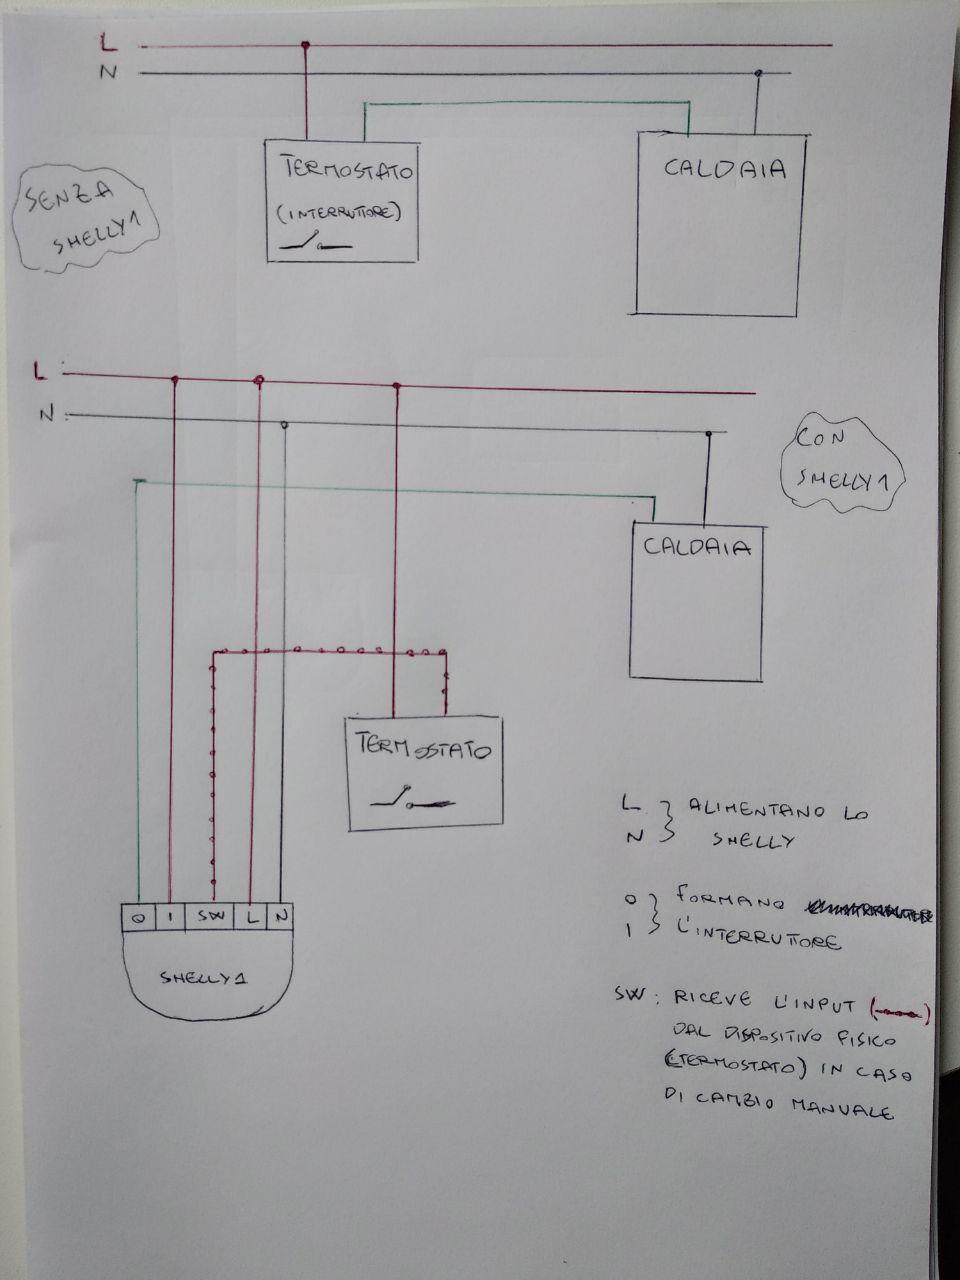 L
N
TERMOSTATO
(INTERRUTTORE)
CALDAIA
SENZA
SHELLY1
L
N
CON
SHELLY1
CALDAIA
TERMOSTATO
O I SW L N
SHELLY1
L } ALIMENTANO LO
N } SHELLY
O } FORMANO
I } L'INTERRUTTORE
SW: RICEVE L'INPUT ( )
DAL DISPOSITIVO FISICO
(TERMOSTATO) IN CASO
DI CAMBIO MANUALE